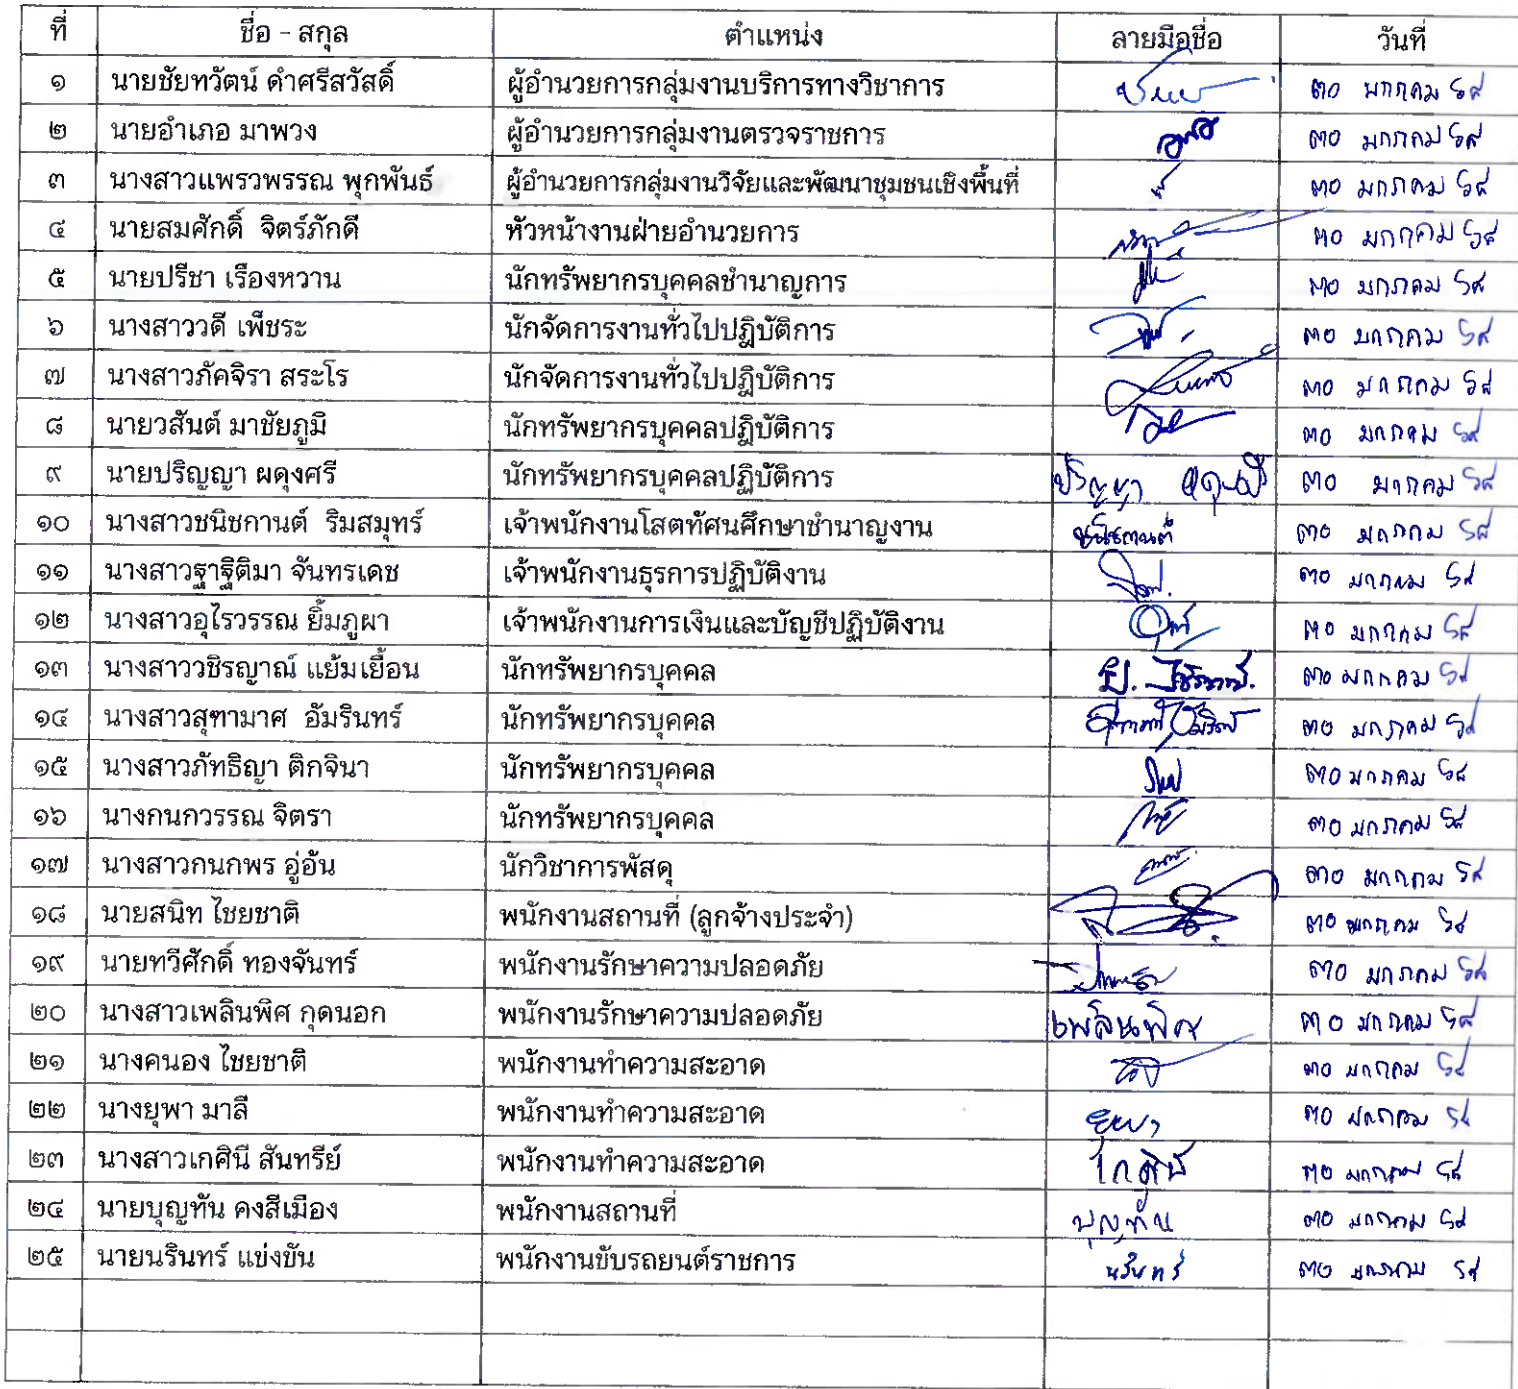 ที่ ชื่อ - สกุล ตำแหน่ง ลายมือชื่อ วันที่
๑ นายชัยทวัตน์ ดำศรีสวัสดิ์ ผู้อำนวยการกลุ่มงานบริการทางวิชาการ ๓๐ มกราคม ๖๘
๒ นายอำเภอ มาพวง ผู้อำนวยการกลุ่มงานตรวจราชการ ๓๐ มกราคม ๖๘
๓ นางสาวแพรวพรรณ พุกพันธ์ ผู้อำนวยการกลุ่มงานวิจัยและพัฒนาชุมชนเชิงพื้นที่ ๓๐ มกราคม ๖๘
๔ นายสมศักดิ์ จิตร์ภักดี หัวหน้างานฝ่ายอำนวยการ ๓๐ มกราคม ๖๘
๕ นายปรีชา เรืองหวาน นักทรัพยากรบุคคลชำนาญการ ๓๐ มกราคม ๖๘
๖ นางสาววดี เพ็ชระ นักจัดการงานทั่วไปปฏิบัติการ ๓๐ มกราคม ๖๘
๗ นางสาวภัคจิรา สระโร นักจัดการงานทั่วไปปฏิบัติการ ๓๐ มกราคม ๖๘
๘ นายวสันต์ มาชัยภูมิ นักทรัพยากรบุคคลปฏิบัติการ ๓๐ มกราคม ๖๘
๙ นายปริญญา ผดุงศรี นักทรัพยากรบุคคลปฏิบัติการ ปริญญา ผดุงศรี ๓๐ มกราคม ๖๘
๑๐ นางสาวชนิชกานต์ ริมสมุทร์ เจ้าพนักงานโสตทัศนศึกษาชำนาญงาน ชนิชกานต์ ๓๐ มกราคม ๖๘
๑๑ นางสาวฐาฐิติมา จันทรเดช เจ้าพนักงานธุรการปฏิบัติงาน ๓๐ มกราคม ๖๘
๑๒ นางสาวอุไรวรรณ ยิ้มภูผา เจ้าพนักงานการเงินและบัญชีปฏิบัติงาน ๓๐ มกราคม ๖๘
๑๓ นางสาววชิรญาณ์ แย้มเยื้อน นักทรัพยากรบุคคล ๓๐ มกราคม ๖๘
๑๔ นางสาวสุฑามาศ อัมรินทร์ นักทรัพยากรบุคคล ๓๐ มกราคม ๖๘
๑๕ นางสาวภัทธิญา ติกจินา นักทรัพยากรบุคคล ๓๐ มกราคม ๖๘
๑๖ นางกนกวรรณ จิตรา นักทรัพยากรบุคคล ๓๐ มกราคม ๖๘
๑๗ นางสาวกนกพร อู่อ้น นักวิชาการพัสดุ ๓๐ มกราคม ๖๘
๑๘ นายสนิท ไชยชาติ พนักงานสถานที่ (ลูกจ้างประจำ) ๓๐ มกราคม ๖๘
๑๙ นายทวีศักดิ์ ทองจันทร์ พนักงานรักษาความปลอดภัย ๓๐ มกราคม ๖๘
๒๐ นางสาวเพลินพิศ กุดนอก พนักงานรักษาความปลอดภัย เพลินพิศ ๓๐ มกราคม ๖๘
๒๑ นางคนอง ไชยชาติ พนักงานทำความสะอาด ๓๐ มกราคม ๖๘
๒๒ นางยุพา มาลี พนักงานทำความสะอาด ยุพา ๓๐ มกราคม ๖๘
๒๓ นางสาวเกศินี สันทรีย์ พนักงานทำความสะอาด เกศินี ๓๐ มกราคม ๖๘
๒๔ นายบุญทัน คงสีเมือง พนักงานสถานที่ บุญทัน ๓๐ มกราคม ๖๘
๒๕ นายนรินทร์ แข่งขัน พนักงานขับรถยนต์ราชการ นรินทร์ ๓๐ มกราคม ๖๘